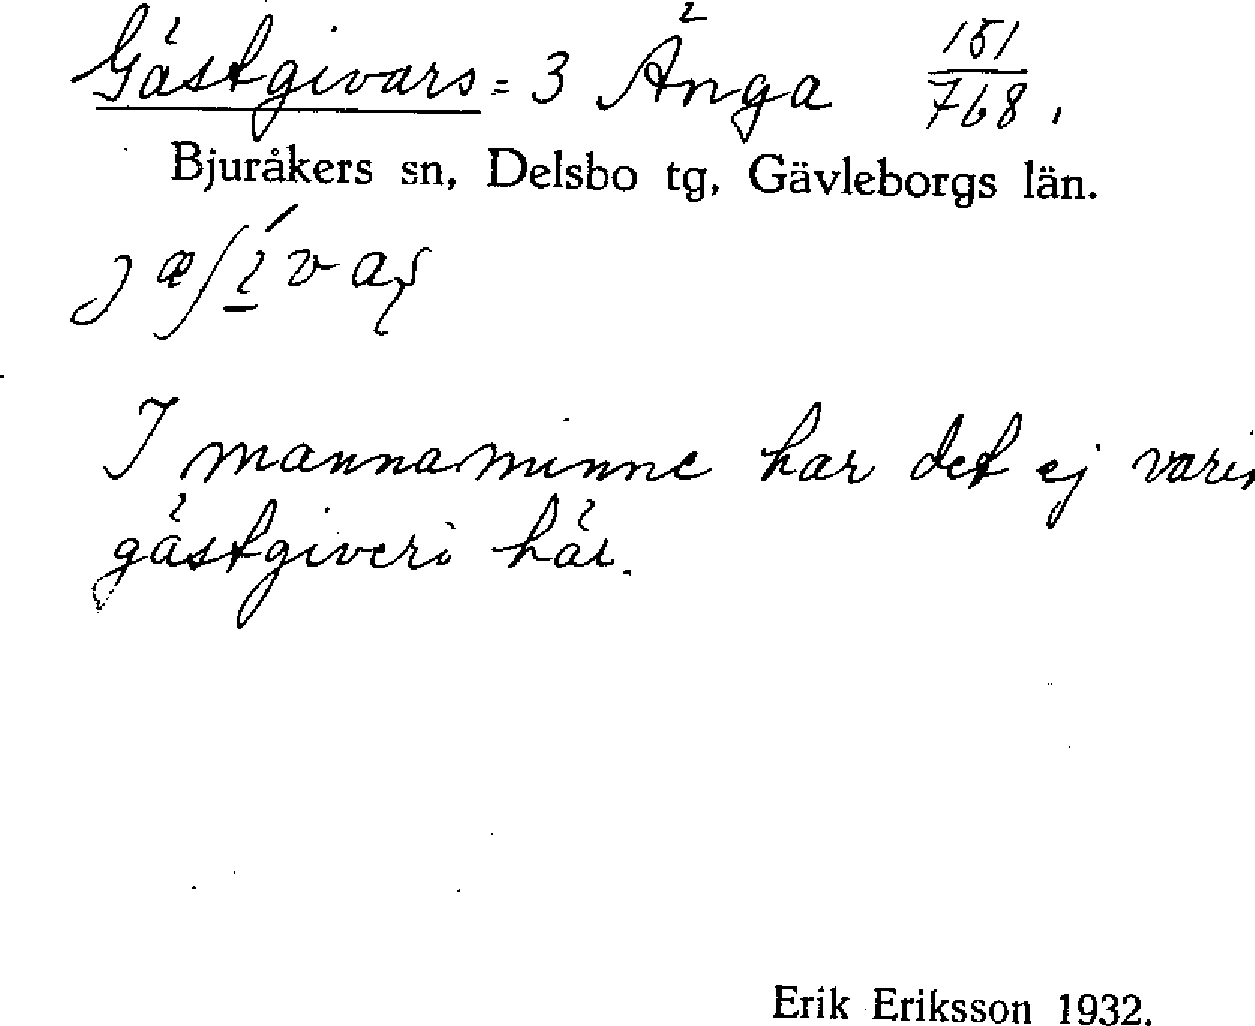 Gästgivars = 3 Änga 151/768.
Bjuråkers sn, Delsbo tg, Gävleborgs län.
I mannaminne har det ej varit
gästgiveri här.
Erik Eriksson 1932.